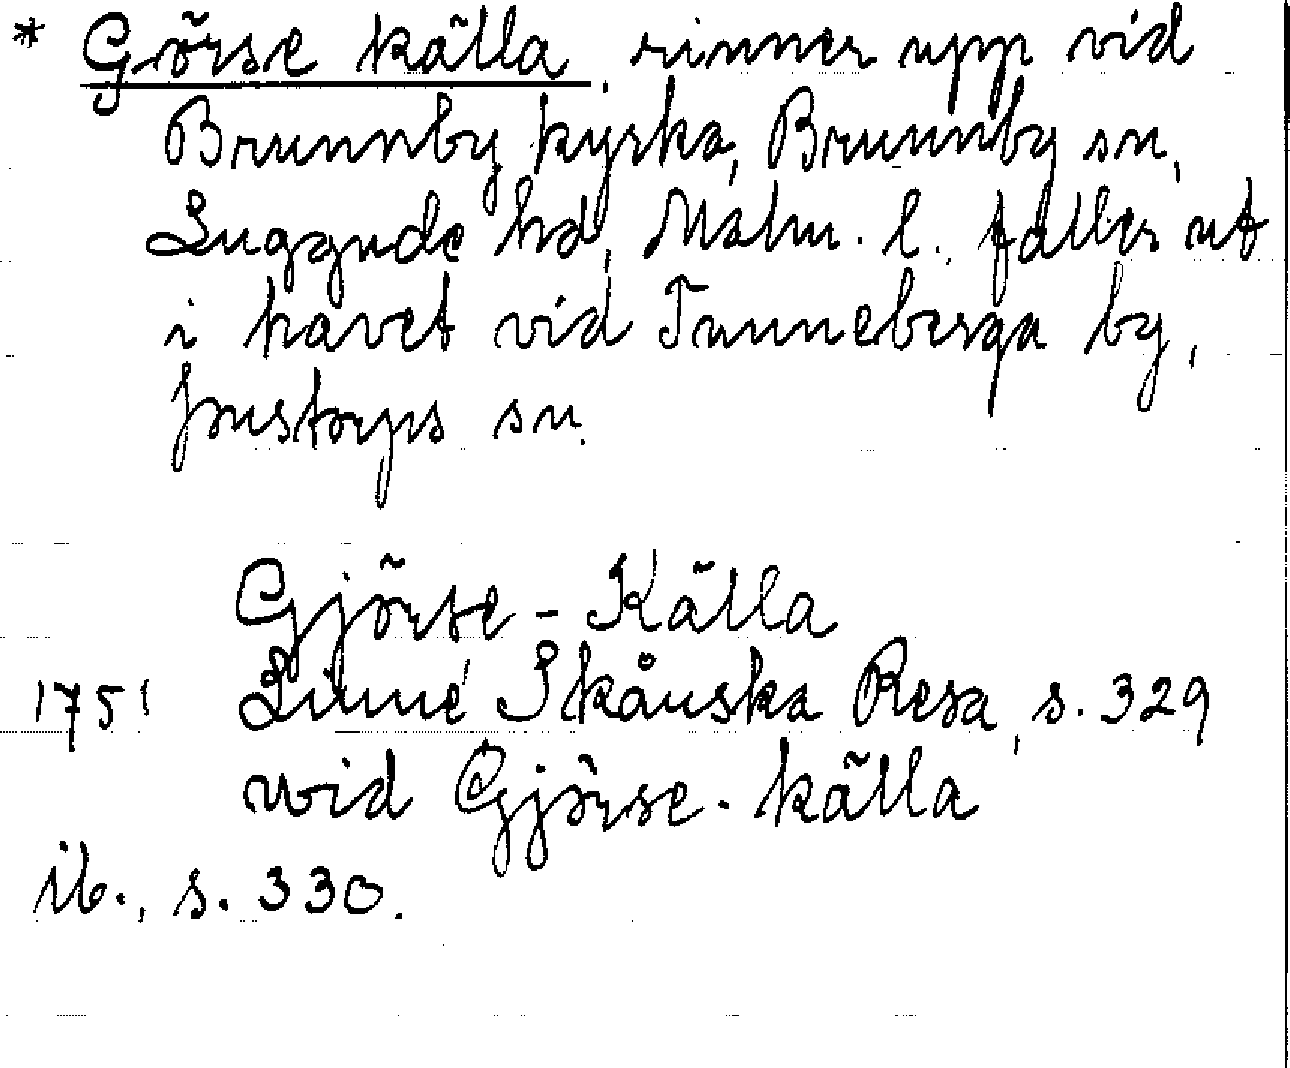 * Görse källa, rinner upp vid
Brunnby kyrka, Brunnby sn,
Luggude hd, Malm. l., faller ut
i havet vid Tunneberga by,
Jonstorps sn.
Gjörse-Källa
1751 Linné Skånska Resa, s. 329
wid Gjörse-källa
ib., s. 330.